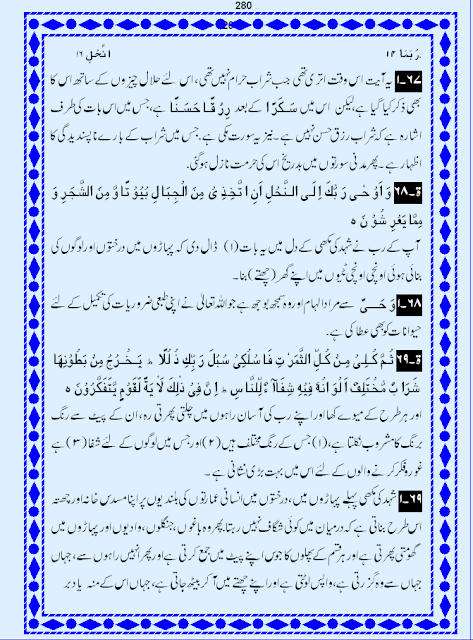 280
رُبَمَا ١٤ النَّحْلِ ١٦
٦٧۔١ یہ آیت اس وقت اتری تھی جب شراب حرام نہیں تھی، اس لئے حلال چیزوں کے ساتھ اس کا
بھی ذکر کیا گیا ہے، لیکن اس میں سَکَرًا کے بعد رِزْقًا حَسَنًا ہے، جس میں اس بات کی طرف
اشارہ ہے کہ شراب رزق حسن نہیں ہے۔ نیز یہ سورت مکی ہے۔ جس میں شراب کے بارے نا پسندیدگی کا
اظہار ہے۔ پھر مدنی سورتوں میں بدریج اس کی حرمت نازل ہوگئی۔
ة۔٦٨ وَ اَوْحٰی رَبُّكَ اِلَی النَّحْلِ اَنِ اتَّخِذِیْ مِنَ الْجِبَالِ بُیُوْتًا وَّ مِنَ الشَّجَرِ وَ
مِمَّا یَعْرِشُوْنَ ہ
آپ کے رب نے شہد کی مکھی کے دل میں یہ بات (١) ڈال دی کہ پہاڑوں میں درختوں اور لوگوں کی
بنائی ہوئی اونچی اونچی ٹٹیوں میں اپنے گھر (چھتے) بنا۔
٦٨۔١ وَحیٌ سے مراد الہام اور وہ سمجھ بوجھ ہے جو اللہ تعالیٰ نے اپنی طبعی ضروریات کی تکمیل کے لئے
حیوانات کو بھی عطا کی ہے۔
ة۔٦٩ ثُمَّ کُلِیْ مِنْ کُلِّ الثَّمَرٰتِ فَاسْلُکِیْ سُبُلَ رَبِّكِ ذُلُلًا ط یَخْرُجُ مِنْ بُطُوْنِهَا
شَرَابٌ مُّخْتَلِفٌ اَلْوَانُهٗ فِیْهِ شِفَآءٌ لِّلنَّاسِ ط اِنَّ فِیْ ذٰلِكَ لَاٰیَةً لِّقَوْمٍ یَّتَفَکَّرُوْنَ ہ
اور ہر طرح کے میوے کھا اور اپنے رب کی آسان راہوں میں چلتی پھرتی رہ، ان کے پیٹ سے رنگ
برنگ کا مشروب نکلتا ہے، (١) جس کے رنگ مختلف ہیں (٢) اور جس میں لوگوں کے لئے شفا (٣) ہے
غور و فکر کرنے والوں کے لئے اس میں بہت بڑی نشانی ہے۔
٦٩۔١ شہد کی مکھی پہلے پہاڑوں میں، درختوں میں انسانی عمارتوں کی بلندیوں پر اپنا مسدس خانہ اور چھتہ
اس طرح بناتی ہے کہ درمیان میں کوئی شگاف نہیں رہتا پھر وہ باغوں، جنگلوں، وادیوں اور پہاڑوں میں
گھومتی پھرتی ہے اور ہر قسم کے پھلوں کا جوس اپنے پیٹ میں جمع کرتی ہے اور پھر انہیں راہوں سے، جہاں
جہاں سے وہ گزرتی ہے، واپس لوٹتی ہے اور اپنے چھتے میں آکر بیٹھ جاتی ہے، جہاں اس کے منہ یا دبر